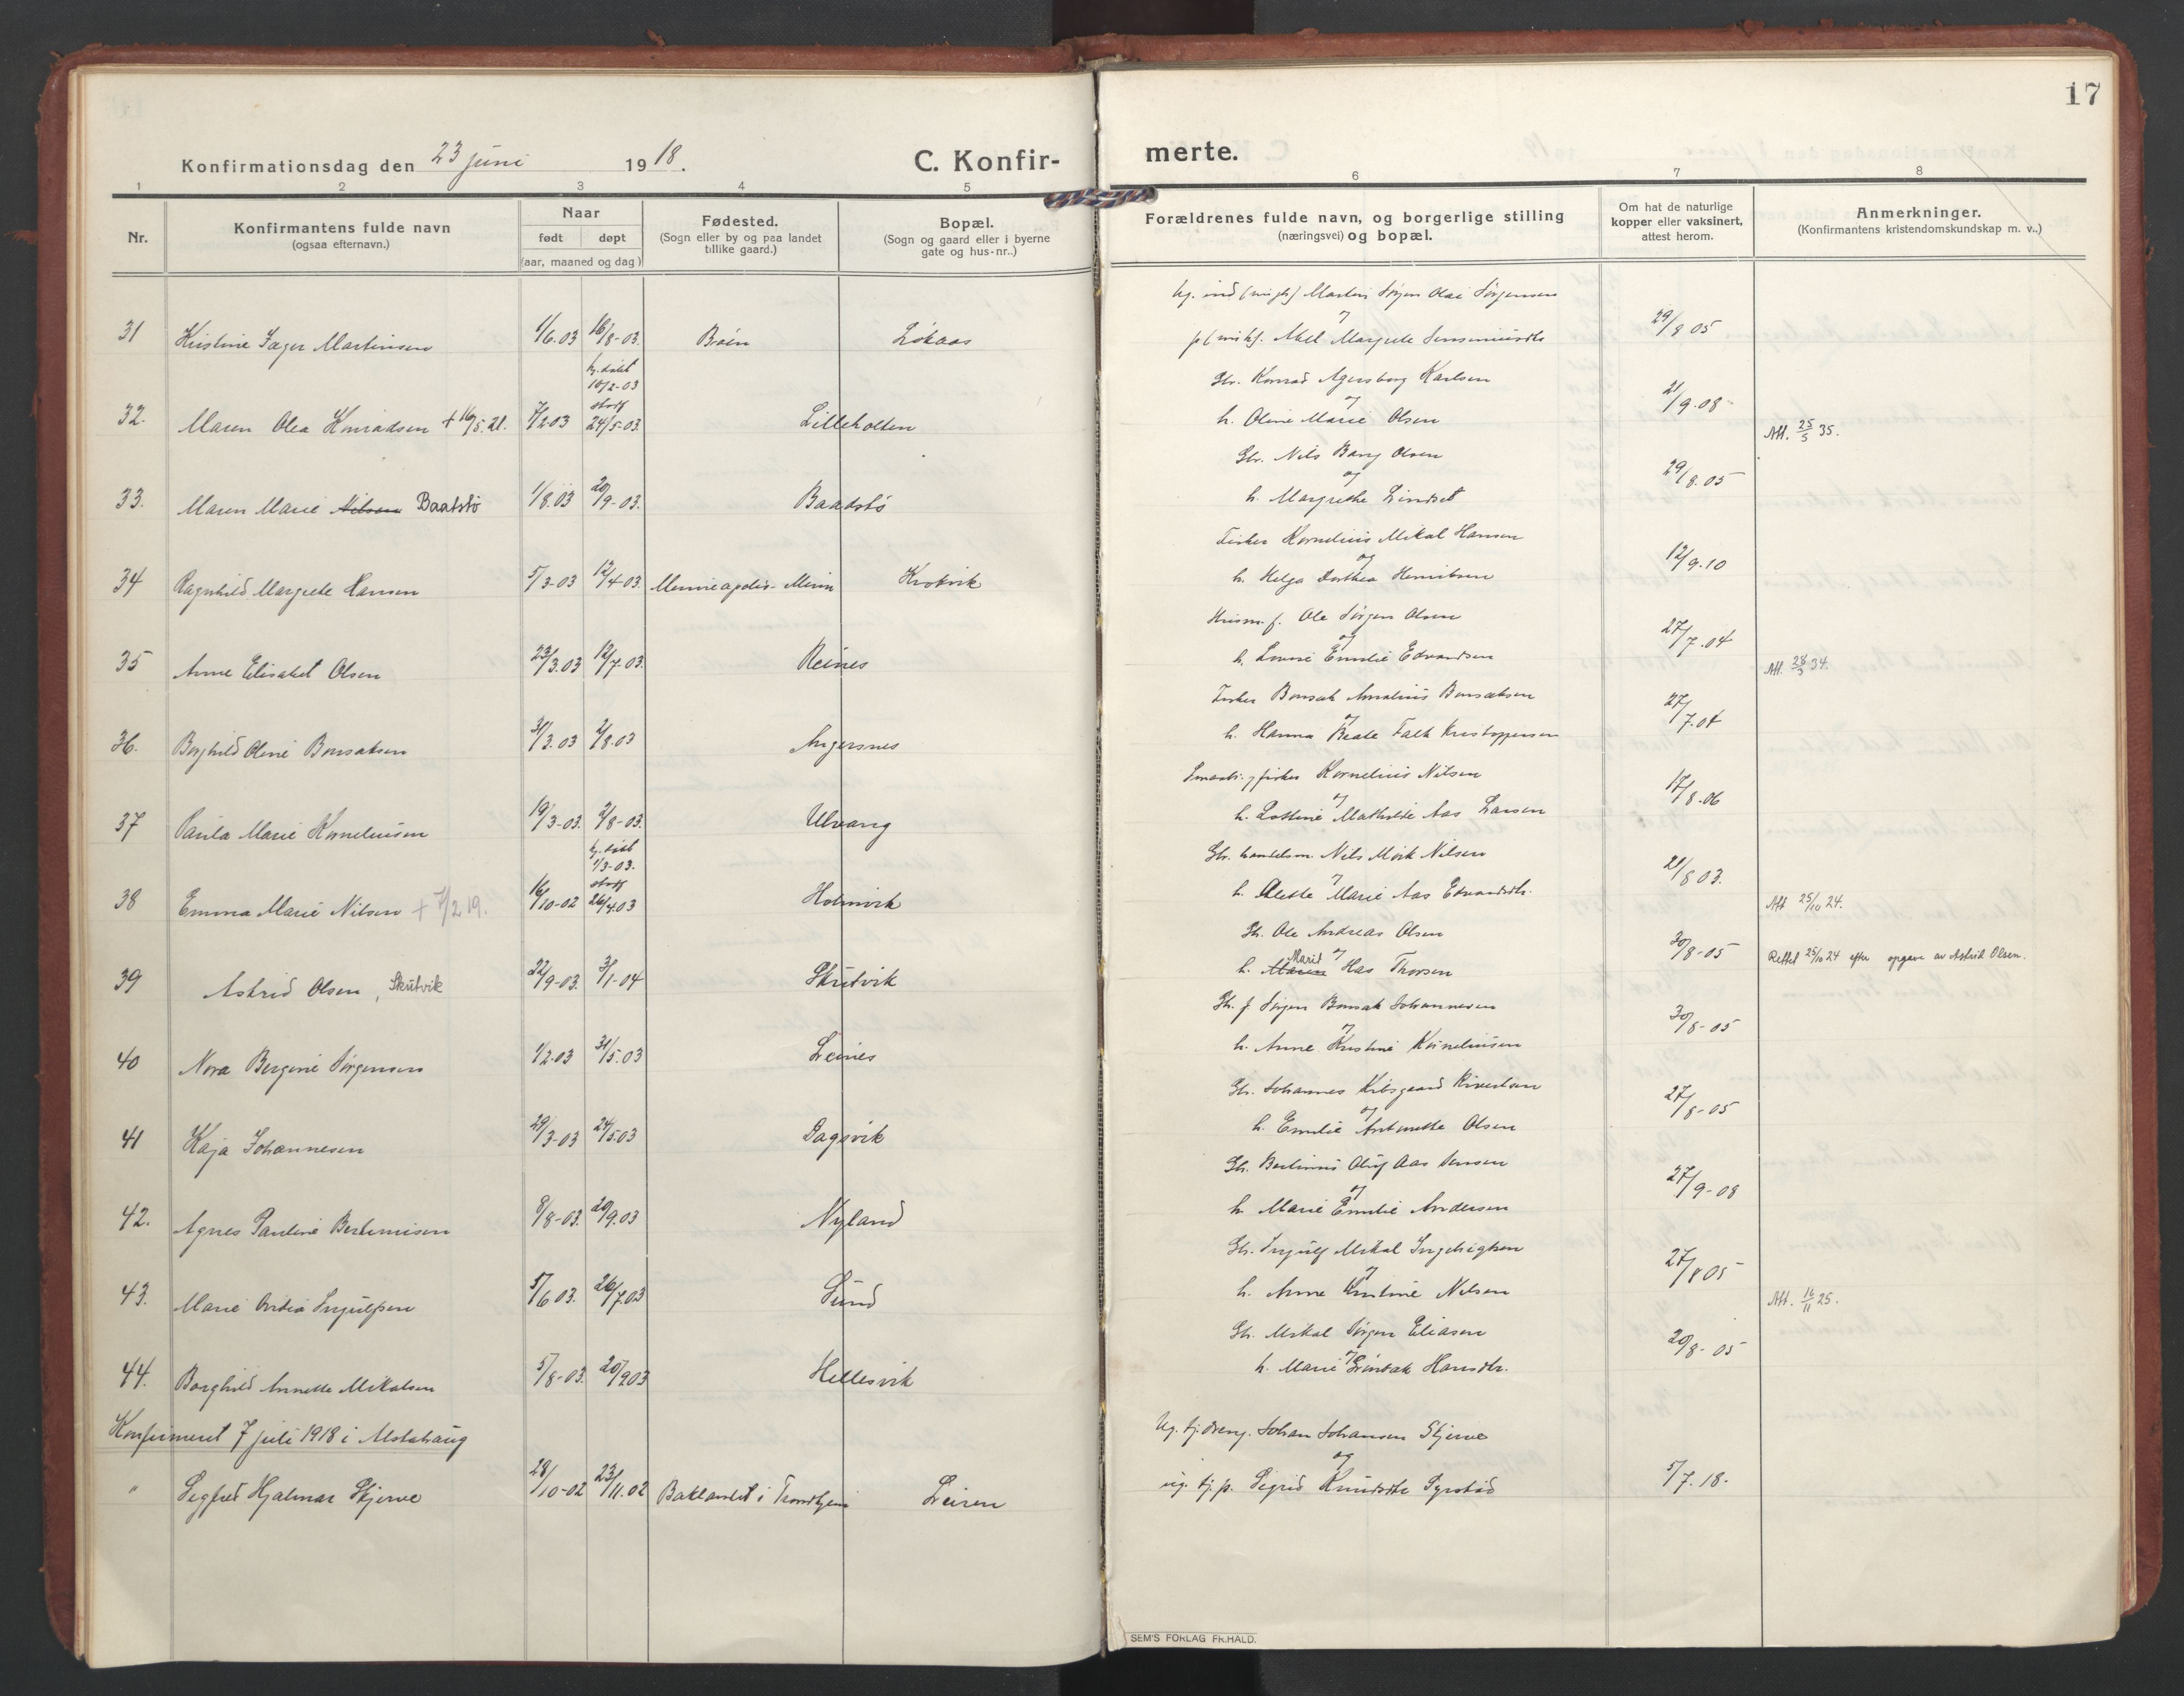 17
Konfirmationsdag den 23 juni 1918.
C. Konfir-
merte.
1 2 3 4 5 6 7 8
Nr.
Konfirmantens fulde navn
(ogsaa efternavn.)
Naar
født døpt
(aar, maaned og dag)
Fødested.
(Sogn eller by og paa landet
tillike gaard.)
Bopæl.
(Sogn og gaard eller i byerne
gate og hus-nr..)
Forældrenes fulde navn, og borgerlige stilling
(næringsvei) og bopæl.
Om hat de naturlige
kopper eller vaksinert,
attest herom.
Anmerkninger.
(Konfirmantens kristendomskundskap m. v..)
31 Kristine Jæger Martinsen 1/6.03 16/8-03. Løkaas
Martin Jørgen Olai Jørgensen
og
Margrete 29/8 05
hj. døbt
10/2-03
stadf
32. Maren Olea Konradsen + 16/5.21. 7/2.03 24/5-03. Lilleholten
Gbr. Konrad Agersborg Karlsen
og
h. Oline Marie Olsen 21/9.08 Att. 25/5 35.
33. Maren Marie Nilsen Baatstø 1/8.03 20/9-03. Baadstø
Gbr. Nils Bang Olsen
og
h. Margrethe Lindset 29/8.05
34 Ragnhild Margrete Hansen 5/3-03 12/4-03. Minneapolis-Minn Krokvik
Fisker Kornelius Mikal Hansen
og
h. Helga Dorthea Henriksen 12/9.10
35 Anne Elisabet Olsen 23/3.03 12/7-03. Reines
Husm. f. Ole Jørgen Olsen
og
h. Lovise Emilie Edvardsen 27/7.04 Att. 28/3 34.
36. Borghild Oline Bonsaksen 31/3.03 2/8.03 Angersnes
Fisker Bonsak Amalius Bonsaksen
og
h. Hanna Beate Falk Kristoffersen 27/7.04
37 Paula Marie Korneliusen 19/3-03. 2/8-03. Ulvang
Smaabr. og fisker Kornelius Nilsen
og
h. Lottine Mathilde Aas Larsen 17/8.06
hj. døbt
1/3-03.
stadf
38 Emma Marie Nilsen + 7/2 19. 16/10-02 26/4.03 Holmvik
Gbr. handelsm. Nils Mørk Nilsen
og
h. Alette Marie Aas Edvardsdtr. 21/8 03. Att 25/10 24.
39 Astrid Olsen, Skutvik 22/9-03. 3/1-04 Skutvik
Gbr. Ole Andreas Olsen
og
h. Maren Marie Has Thorsen 30/8-05 Rettet 25/10 24 efter opgave av Astrid Olsen.
40 Nora Bergine Jørgensen 1/2.03 31/5.03 Leines
Gbr. f. Jørgen Bonsak Johannesen
og
h. Anne Kristine Korneliusen 30/8-05
41 Kaja Johannesen 29/3-03 24/5.03 Dagsvik
Gbr. Johannes Kibsgaard
og
h. Emilie Antonette Olsen 27/8-05
42. Agnes Pauline Bertinusen 8/8-03. 20/9.03 Nyland
Gbr. Bertinus Oluf Aas Jensen
og
h. Marie Emilie Andersen 27/9-08
43. Marie Ovidia Ingulfsen 5/6 03. 26/7.03 Sund
Gbr. Ingulf Mikal Ingebrigtsen
og
h. Anne Kristine Nilsen 27/8 05 Att. 16/11 25.
44. Borghild Annette Mikalsen 5/8-03. 20/9 03 Hellesvik
Gbr. Mikal Jørgen Eliasen
og
h. Marie Hansdtr. 20/8-05
Konfirmeret 7 juli 1918 i Alstahaug
" Segfred Hjalmar Skjerve 28/10-02 23/11.02 Baklandet i Trondhjem Leiren
Ug. tj.dreng. Johan Johansen Skjerve
og
ug. tj. p. Sigrid Knudsdtr Syrstad 5/7.18.
SEM'S FORLAG FR.HALD.